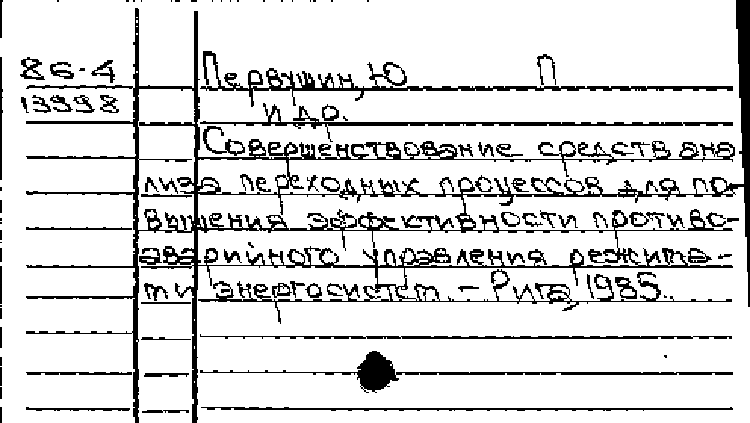 86-4 Первушин, Ю П
13998 и др.
Совершенствование средств ана-
лиза переходных процессов для по-
вышения эффективности противо-
аварийного управления режима-
ми энергосистем. – Рига, 1985.